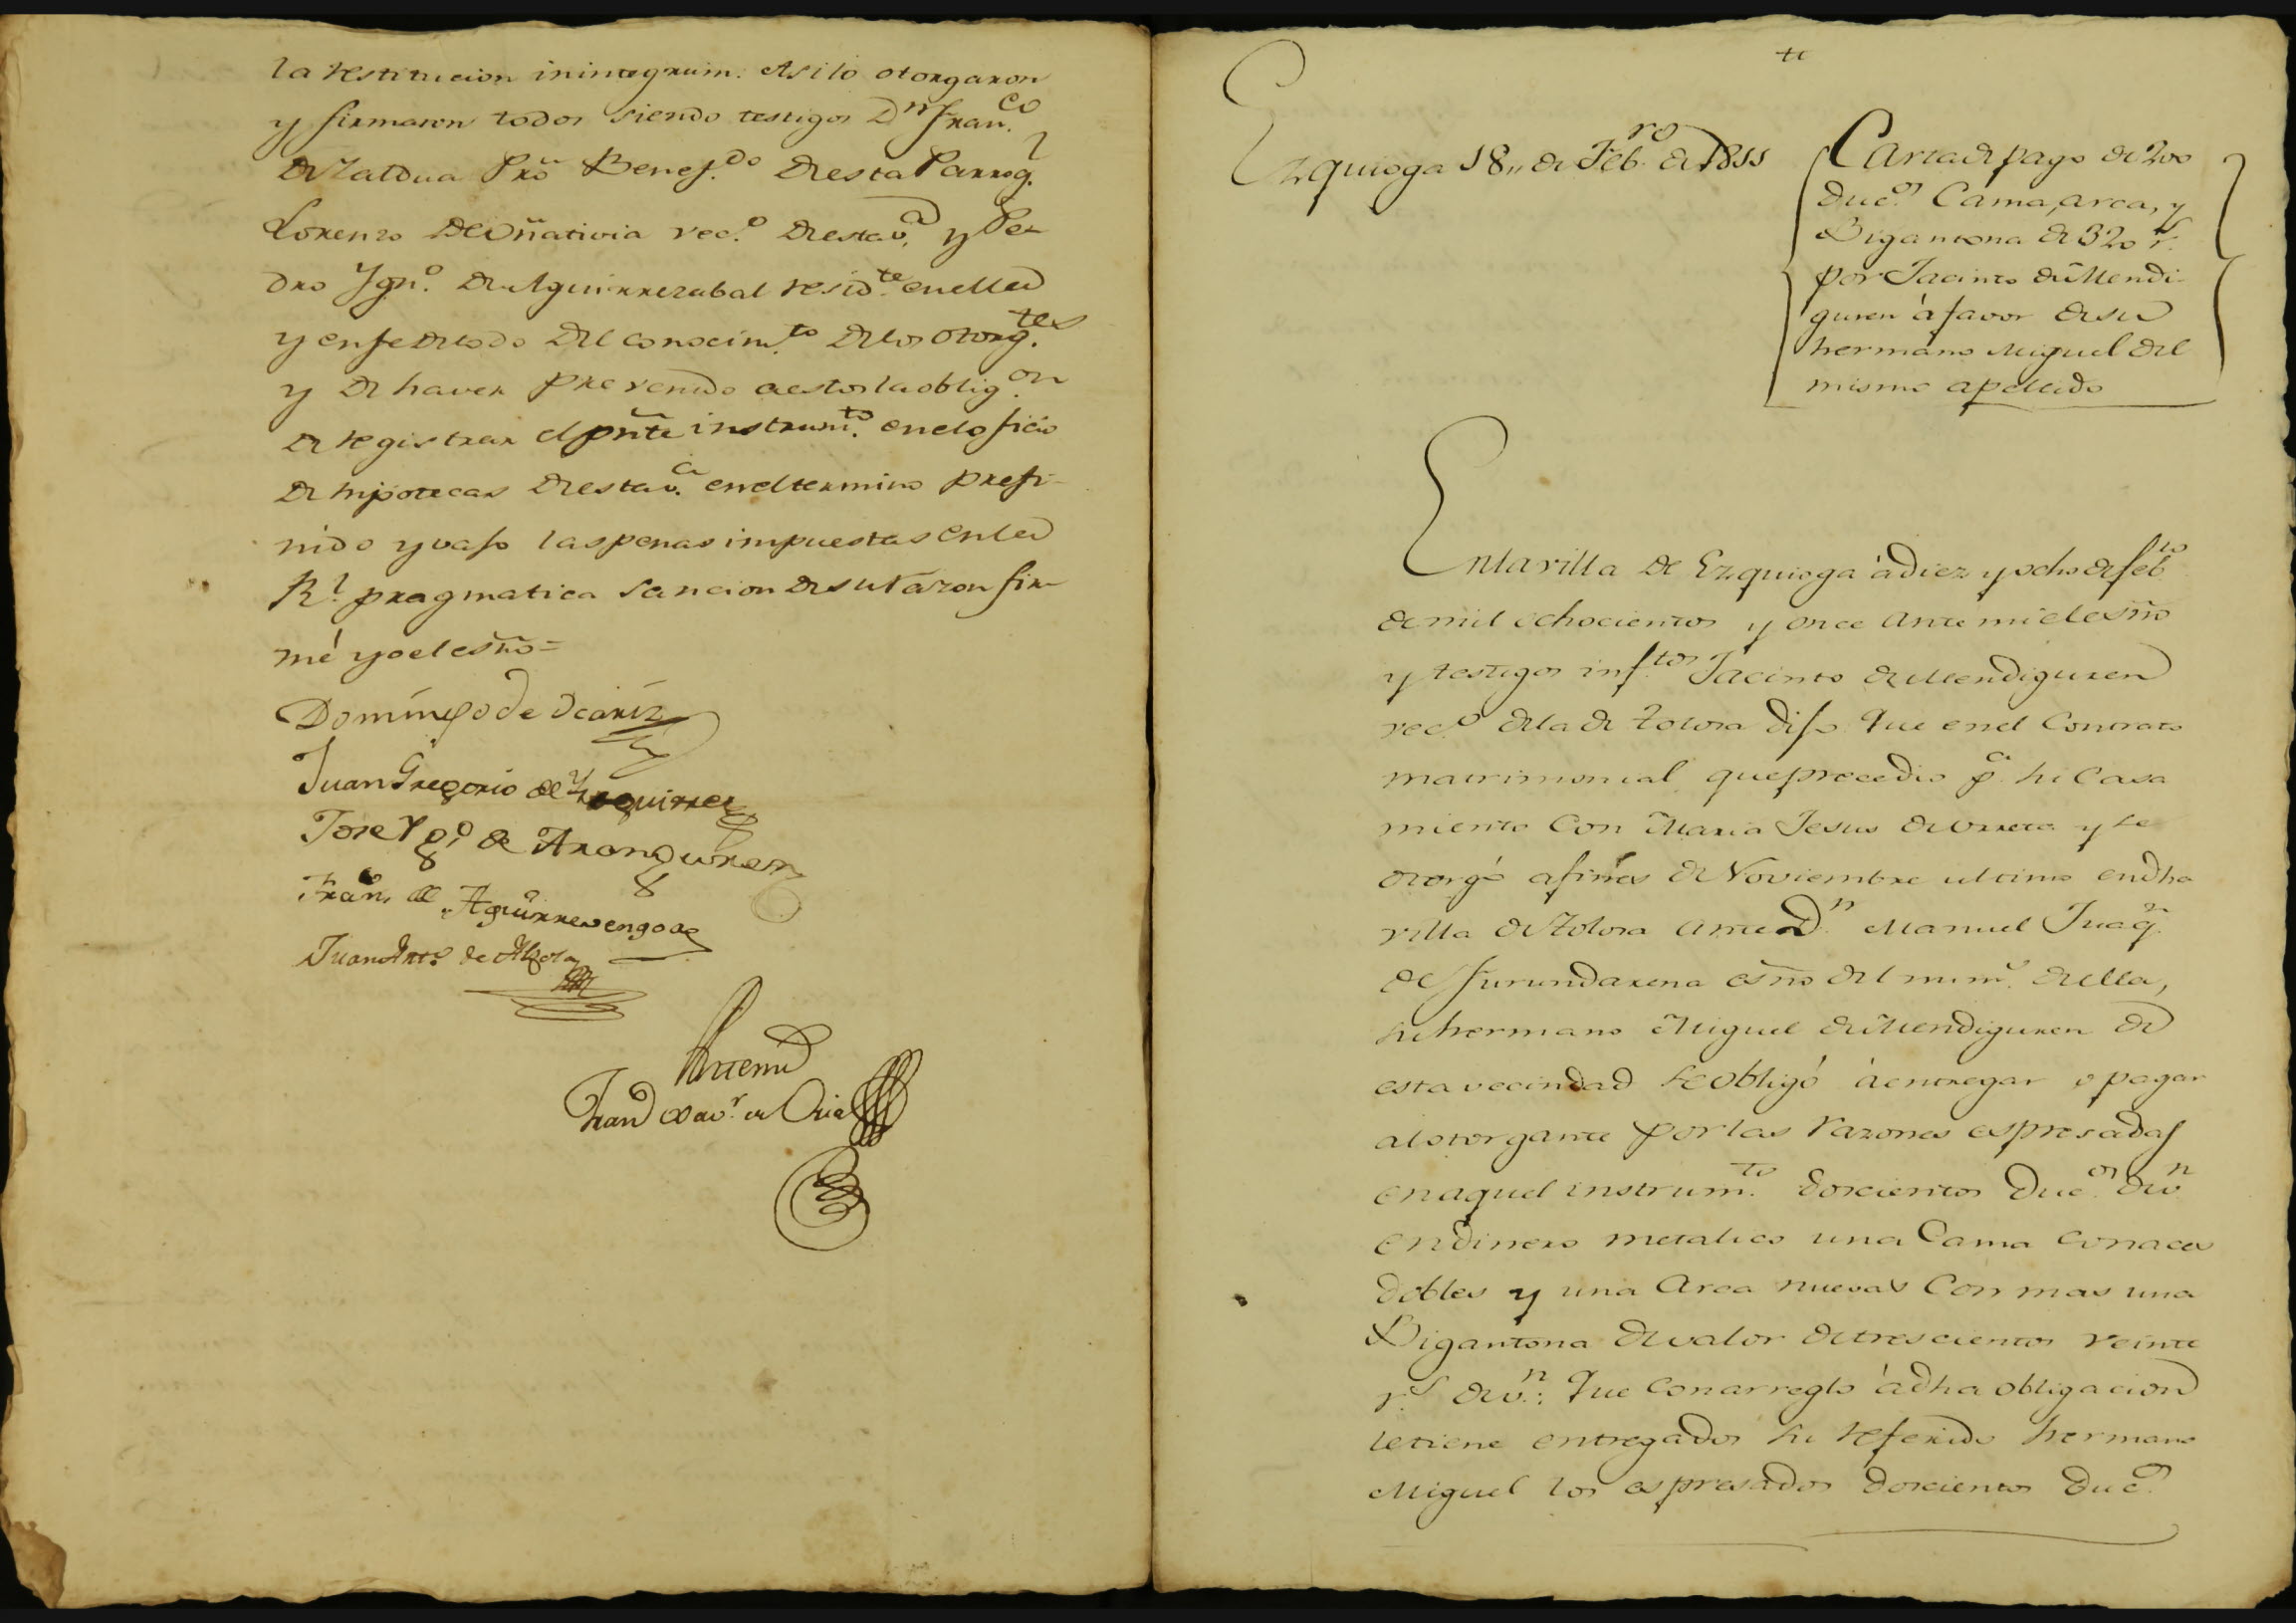 la restitucion inintegrum. Asi lo otorgaron
y firmaron todos siendo testigos Dn Franco
de Zaldua Pro Benefdo de esta Parroql
Lorenzo de Oñativia veco de esta va y Pe-
dro Igno de Aguirrezabal residte en ella
y en fe de todo del conocimto de los otorgtes
y de haver prevenido a estos la obligon
de registrar el pnte instrumto en el oficio
de hipotecas de esta va en el termino prefi-
nido y vajo las penas impuestas en la
Rl pragmatica sancion de su razon fir-
mé yo el esno =
Domingo de
Juan Gregorio de
Jose Ygo de Aranguren
Fran de Aguirresengoa
Juan Anto de Alzola
Antemi
Franco Xavr de Oria
Ezquioga 18 de Febro de 1811
Carta de pago de 200
ducs Cama, arca, y
Bigantona de 320 rs
por Jacinto de Mendi-
guren á favor de su
hermano Miguel del
mismo apellido
En la villa de Ezquioga á diez y ocho de febro
de mil ochocientos y once ante mi el esno
y testigos inftos Jacinto de Mendiguren
veco de la de Tolosa dijo Que en el Contrato
matrimonial que precedio pa su Casa
miento Con Maria Jesus de Urreta y se
otorgó a fines de Noviembre ultimo en dha
villa de Tolosa ante Dn Manuel Juaqn
de Furundarena esno del numo de ella,
su hermano Miguel de Mendiguren de
esta vecindad se obligó á entregar o pagar
al otorgante por las razones espresadas
en aquel instrumto doscientos Ducos de vn
en dinero metalico una Cama con aces
dobles y una Arca nuevas Con mas una
Bigantona de valor de trescientos veinte
rs de vn: Que con arreglo á dha obligacion
le tiene entregados su referido hermano
Miguel los espresados doscientos Ducs